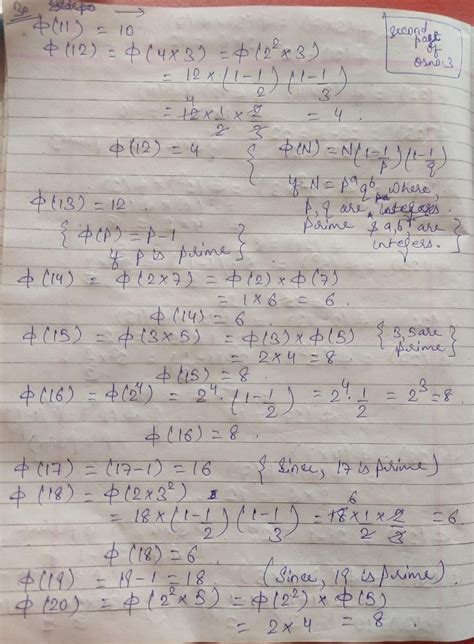 φ(11) = 10
second
part
of
φ(12) = φ(4×3) = φ(2²×3)
= 12 × (1-1/2) (1-1/3)
= 12 × 1/2 × 2/3 = 4.
4
φ(12) = 4
{ φ(N) = N(1-1/p)(1-1/q)
if N = p^a q^b, where,
p, q are
prime & a, b are
integers. }
φ(13) = 12.
{ φ(p) = p-1
if p is prime }
φ(14) = φ(2×7) = φ(2) × φ(7)
= 1×6 = 6.
φ(14) = 6
φ(15) = φ(3×5) = φ(3) × φ(5) { 3,5 are
prime }
= 2×4 = 8.
φ(15) = 8.
φ(16) = φ(2⁴) = 2⁴·(1-1/2) = 2⁴·1/2 = 2³ = 8.
φ(16) = 8.
φ(17) = (17-1) = 16 { Since, 17 is prime)
φ(18) = φ(2×3²)
= 18×(1-1/2)(1-1/3) = 18×1/2 × 2/3 = 6
6
φ(18) = 6.
φ(19) = 19-1 = 18. (Since, 19 is prime).
φ(20) = φ(2²×5) = φ(2²) × φ(5)
= 2×4 = 8.